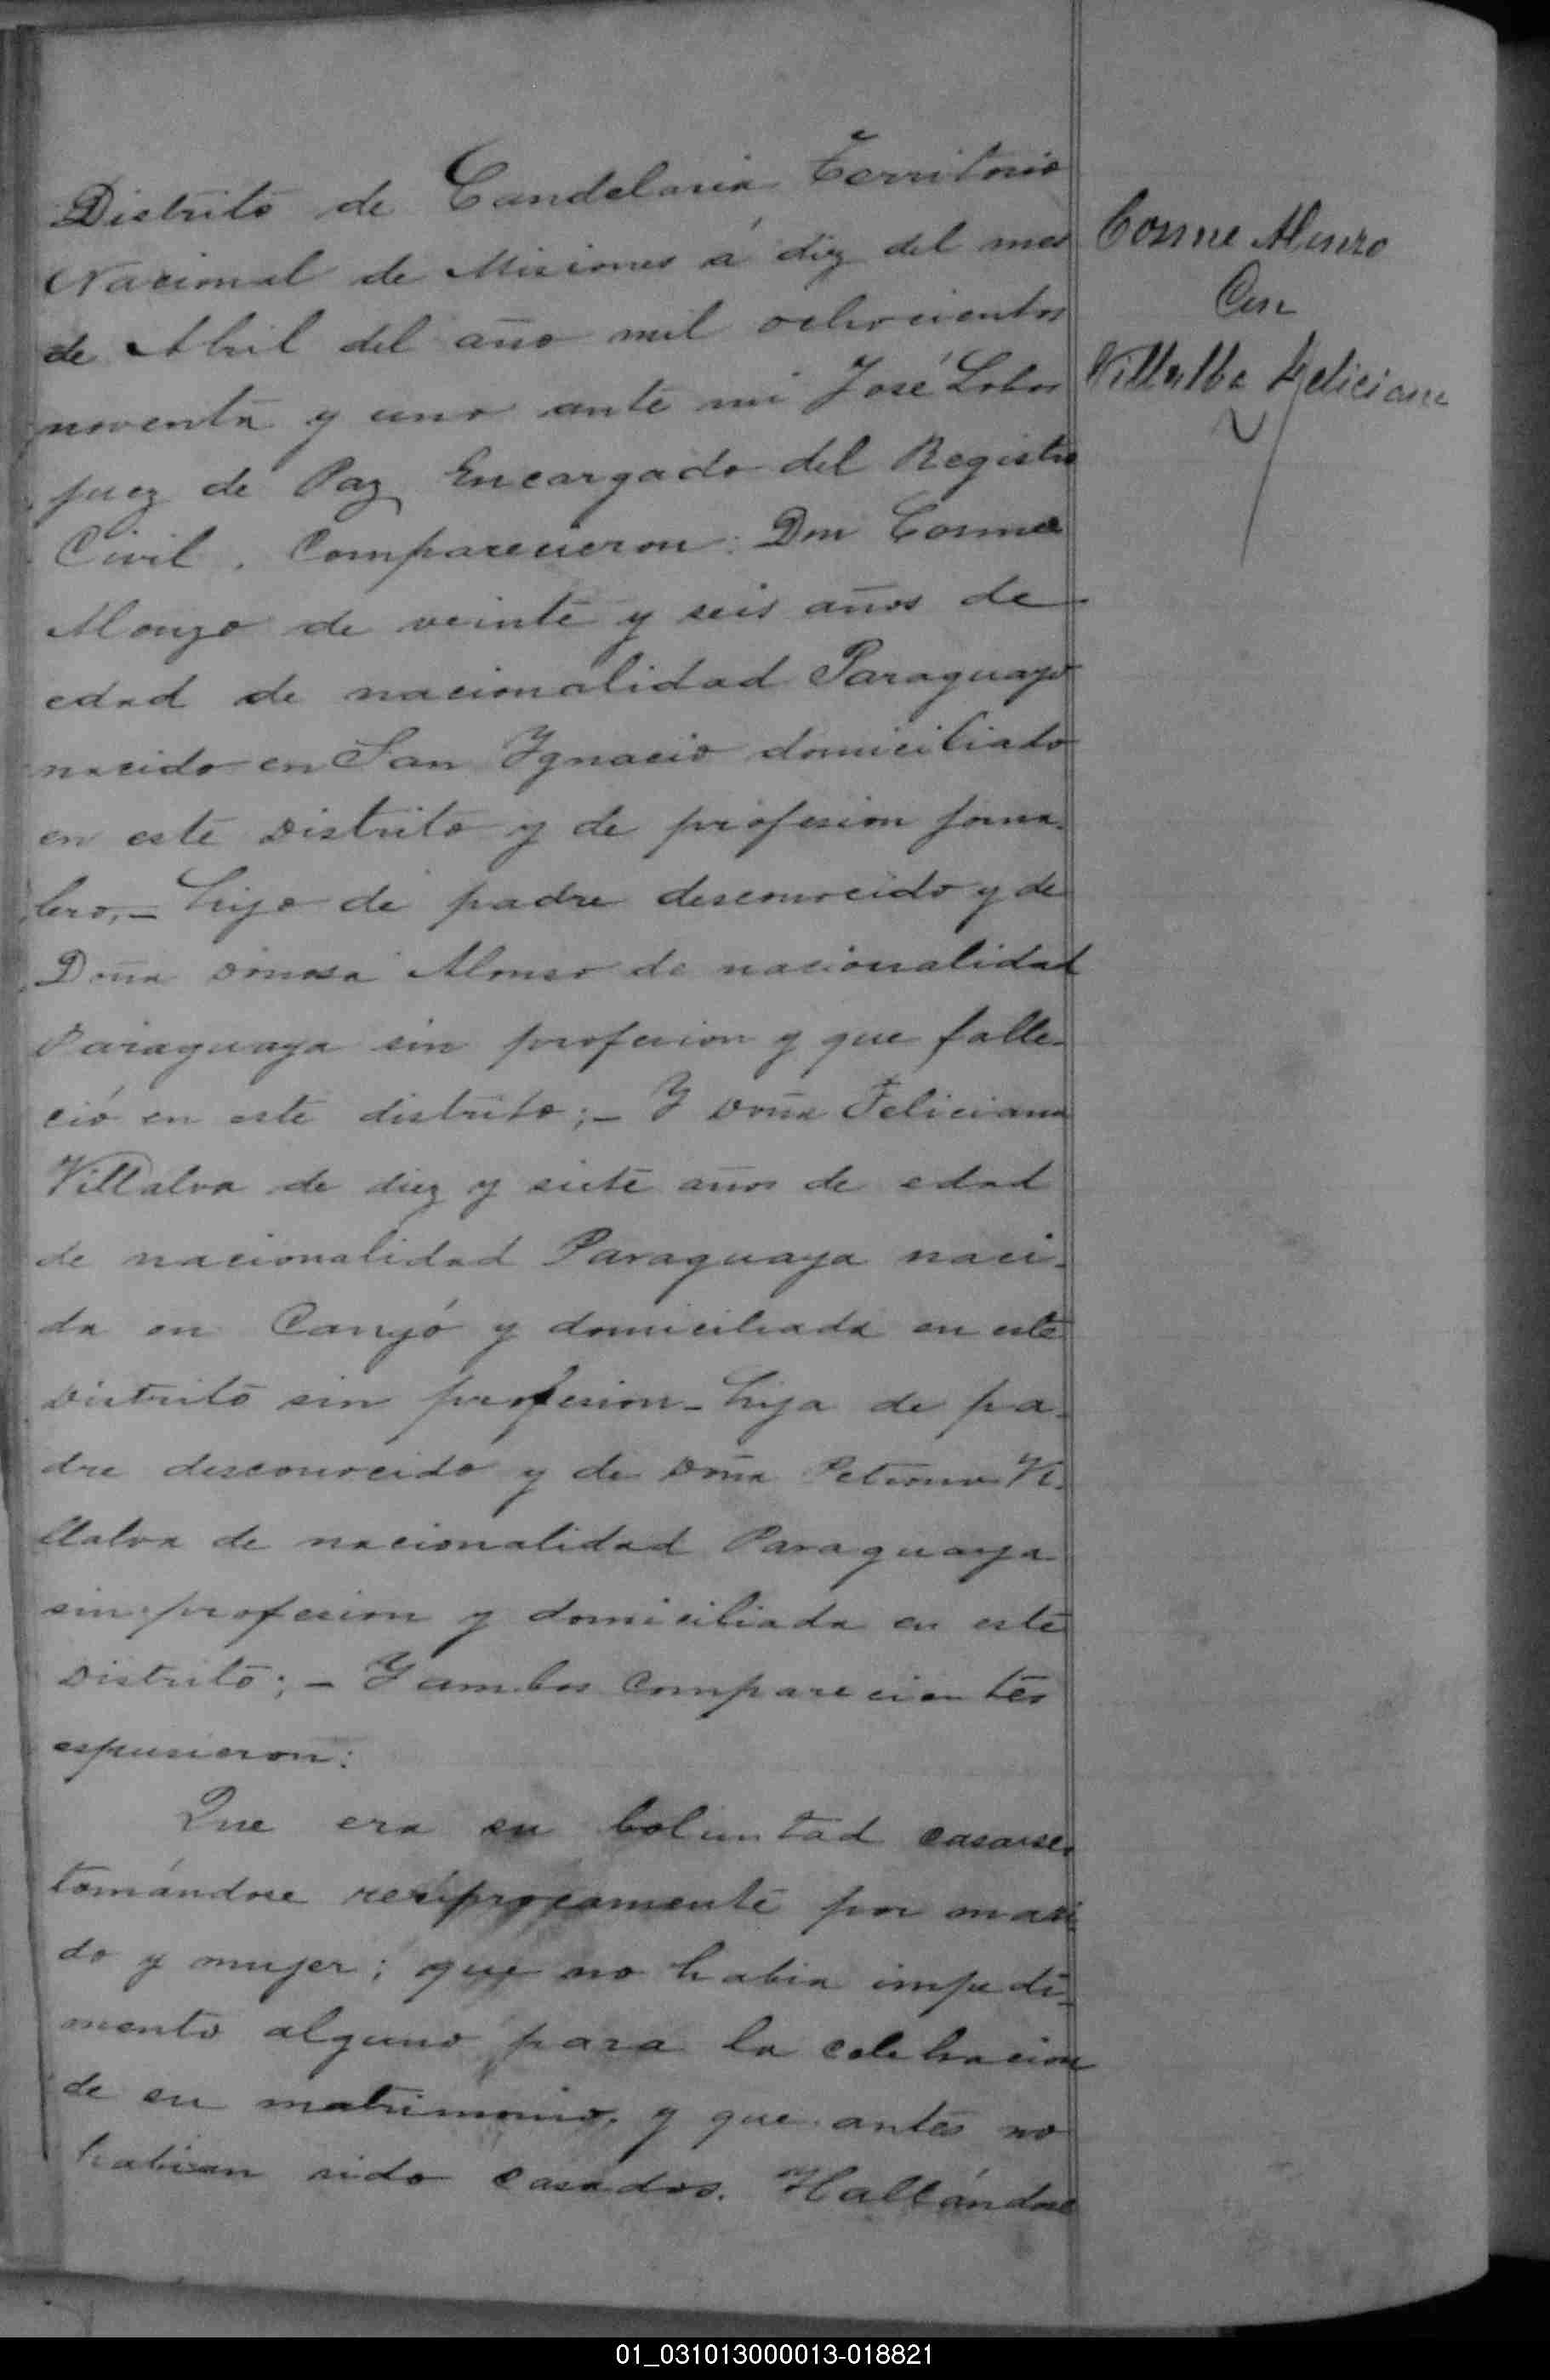 Distrito de Candelaria Territorio
Nacional de Misiones á diez del mes
de Abril del año mil ochocientos
noventa y uno ante mi José Lobos
juez de Paz Encargado del Registro
Civil, Comparecieron: Don Cosme
Alonzo de veinte y seis años de
edad de nacionalidad Paraguayo
nacido en San Ygnacio domiciliado
en este Distrito y de profesion jorna-
lero,- hijo de padre desconocido y de
Doña Alonso de nacionalidad
Paraguaya sin profesion y que falle-
ció en este distrito;- Y Doña Feliciana
Villalva de diez y siete años de edad
de nacionalidad Paraguaya naci-
da en y domiciliada en este
Distrito sin profesion- hija de pa-
dre desconocido y de Doña Petrona Vi-
llalva de nacionalidad Paraguaya
sin profesion y domiciliada en este
Distrito;- Y ambos Comparecientes
espusieron:
Que era su boluntad casarse,
tomándose reciprocamente por mari-
do y mujer; que no habia impedi-
mento alguno para la celebracion
de su matrimonio, y que antes no
habian sido casados. Hallándose
Cosme Alonzo
Con
Villalba Feliciana
01_031013000013-018821